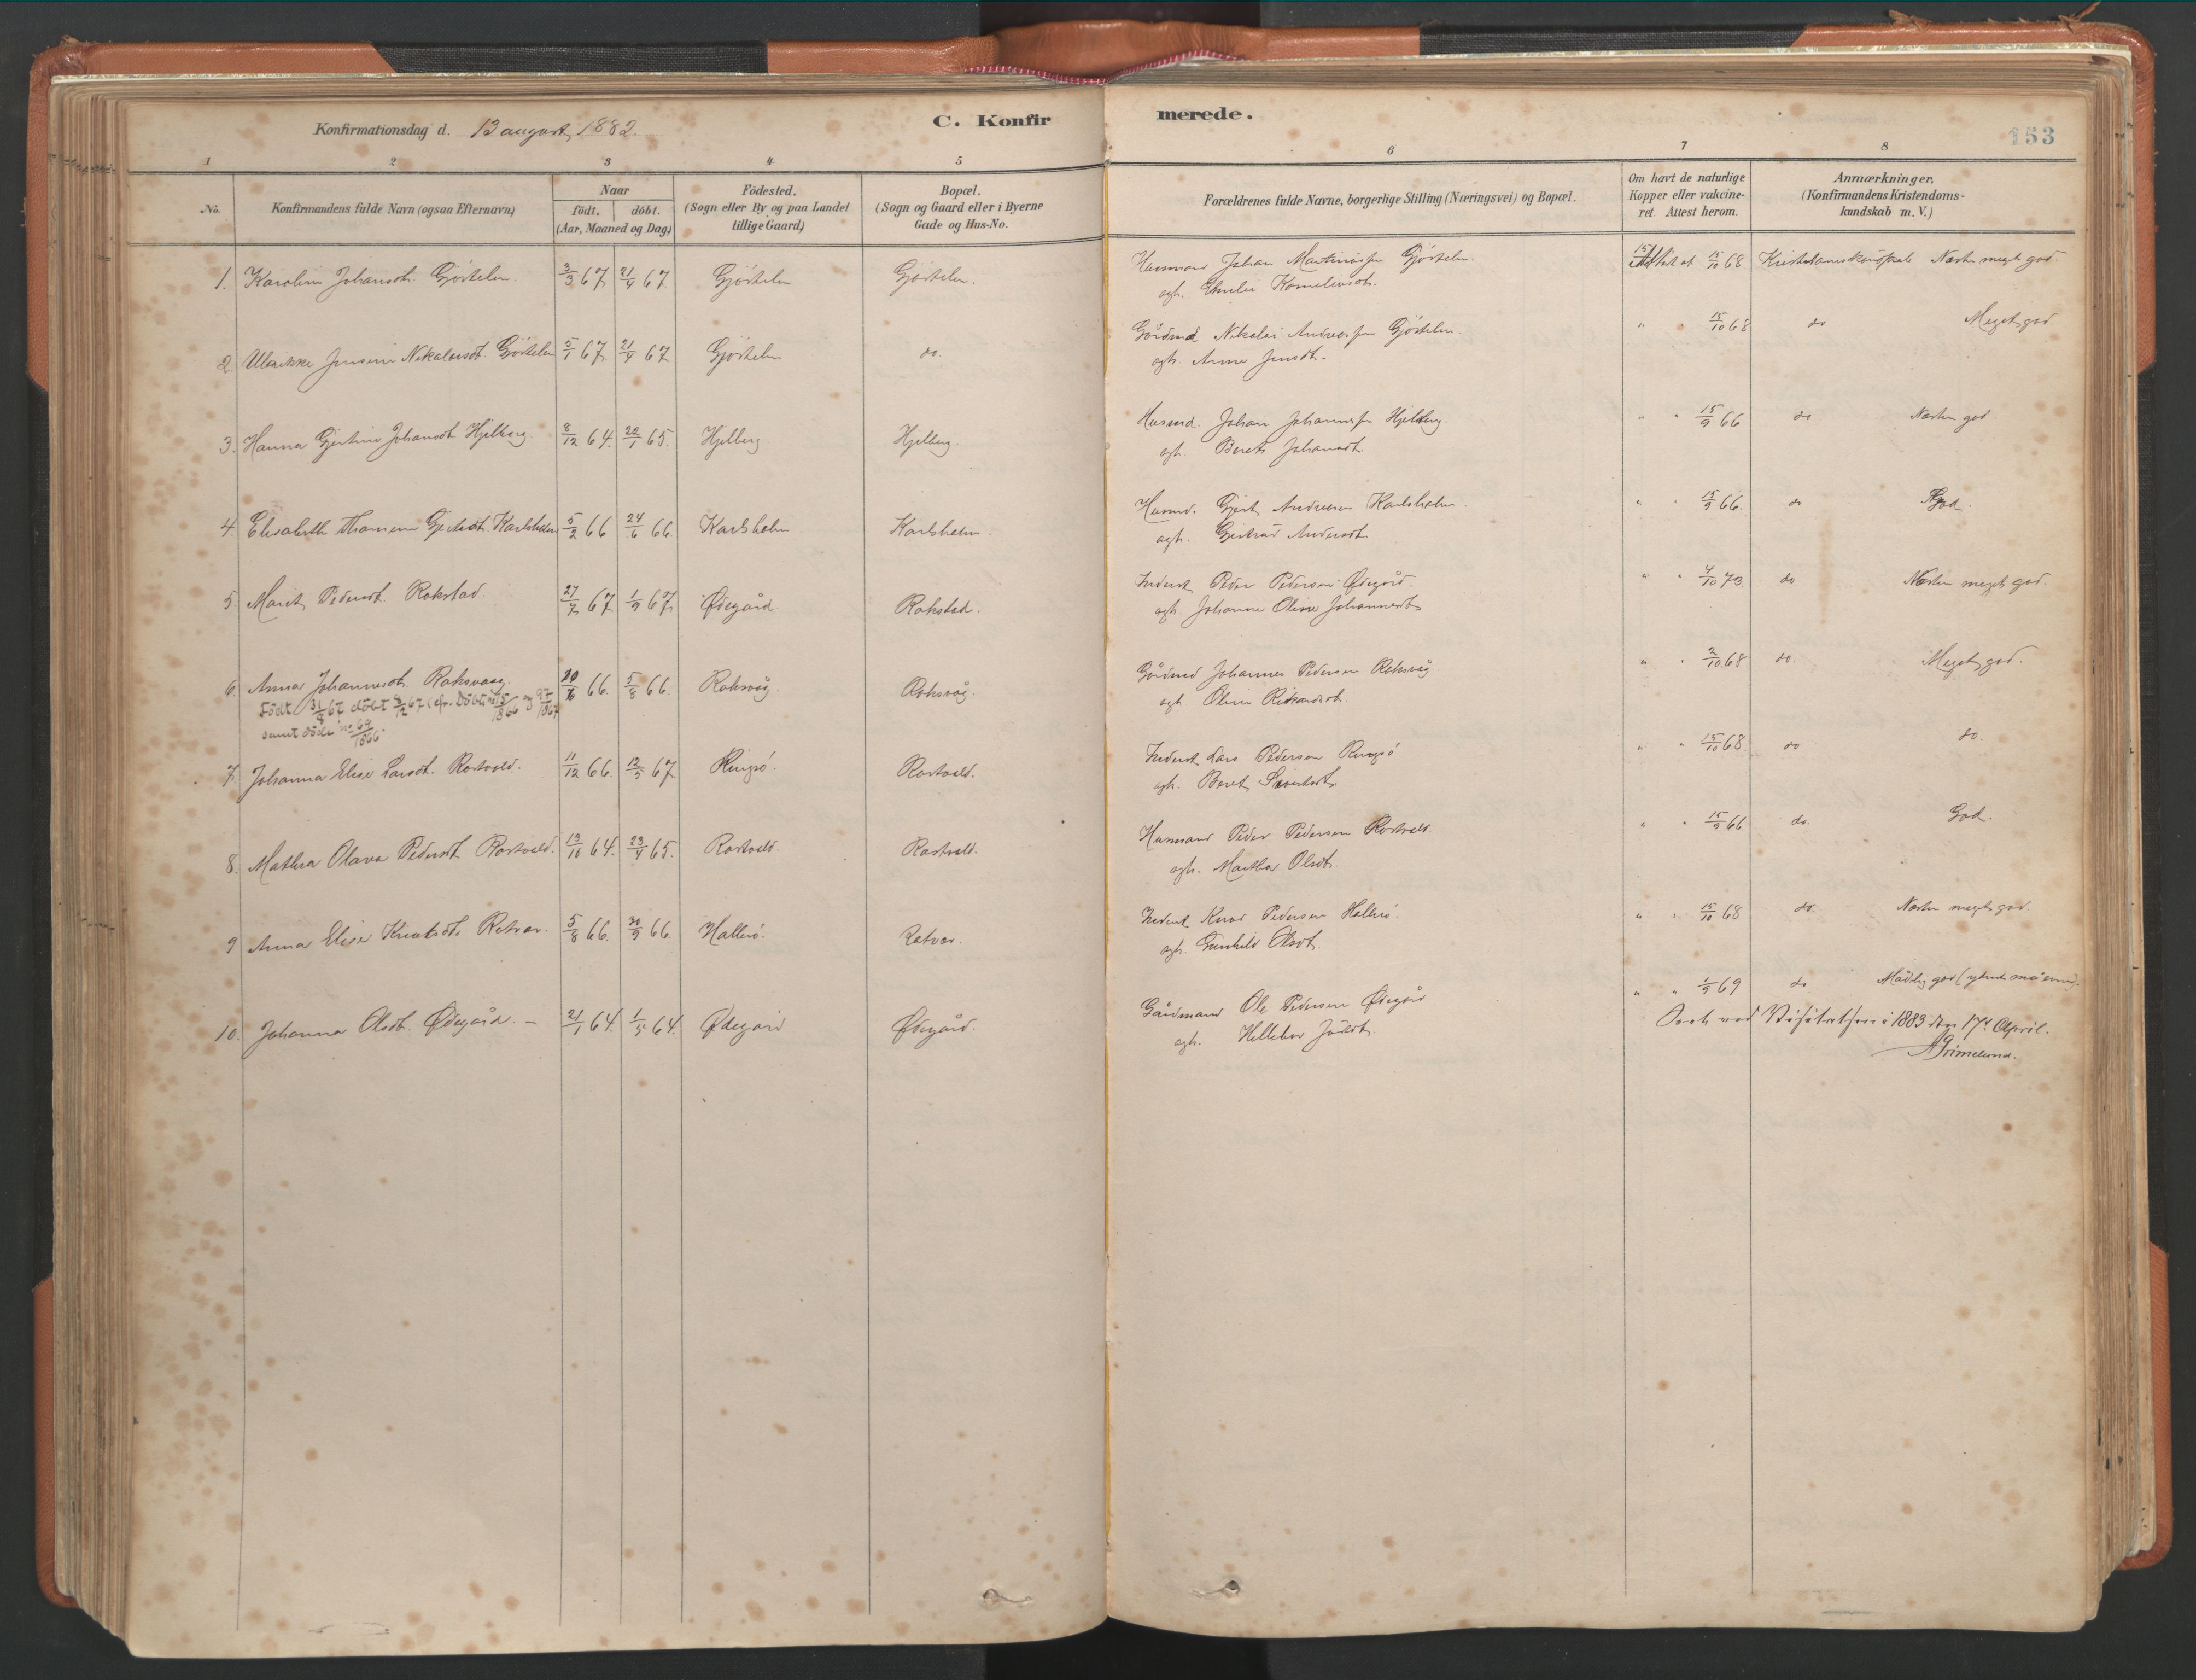 Konfirmationsdag d. 13 august 1882.
C. Konfirmerede.
153
1 2 3 4 5 6 7 8
No.
Konfirmandens fulde Navn (ogsaa Efternavn)
Naar
födt, döbt.
(Aar, Maaned og Dag)
Födested.
(Sogn eller By og paa Landet
tillige Gaard)
Bopæl.
(Sogn og Gaard eller i Byerne
Gade og Hus-No.
Forældrenes fulde Navne, borgerlige Stilling (Næringsvei) og Bopæl.
Om havt de naturlige
Kopper eller vakcine-
ret. Attest herom.
Anmærkninger,
(Konfirmandens Kristendoms-
kundskab m. V.)
1. Karolina Johansdt. Gjöstelen. 3/3 67 21/4 67 Gjöstelen Gjöstelen.
Husmand Johan Martinussen Gjöstelen 15/10 68 Kristendomskundskab Næsten meget god.
ogh. Emilie Kornelius dt.
2. Ulrikke Jensine Nikolaisdt. Gjöstelen 5/1 67 21/4 67 Gjöstelen do.
Gårdmd Nikolai Andreassen Gjöstelen. " " 15/10 68 do Meget god
ogh. Anne Jensdt.
3. Hanna Gjertine Johansdt. Hjelberg 8/12 64. 22/1 65. Hjelberg. Hjelberg.
Husmd. Johan Johannessen Hjelberg " " 15/9 66 do Næsten god
ogh. Beret Johansdt.
4. Elisabeth Thomine Gjertsdt. Karlsholm 5/2 66 24/6 66. Karlsholm Karlsholm.
Husmd. Gjert Andreasen Karlsholm " " 15/9 66. do God.
ogh. Gjertrud Andersdt.
5. Marit Pedersdt. Rokstad. 27/7 67 1/9 67 Ødegård Rokstad.
Inderst Peder Pedersen Ødegård. " " 4/10 73 do Næsten meget god.
ogh. Johanne Oline Johannesdt.
6. Anna Johannesdt. Roksvaag. 20/6 66. 5/8 66. Roksvåg. Roksvåg.
Födt 31/8 67 döbt 3/12 67 (cfr. Döbte
samt döde no 64/1866
Gårdmd Johannes Pedersen Roksvåg " " 2/10 68 do. Meget god.
ogh. Oline Rikardsdt.
7. Johanna Elise Larsdt. Rostvold. 11/12 66. 12/5 67 Ringsö. Rostvold.
Inderst Lars Pedersen Ringsö " " 15/10 68. do do.
ogh. Beret Sivertsdt.
8. Mathea Olava Pedersdt. Rostvold. 13/10 64. 23/4 65. Rostvold. Rostvold.
Husmand Peder Pedersen Rostvold " " 15/9 66 do. God.
ogh. Martha Olsdt.
9 Anna Elise Knutsdt. Betvar. 5/8 66. 30/9 66. Hallesö. Betvar.
Inderst Knud Pedersen Hallesö. " " 15/10 68 do. Næsten meget god
ogh. Gunhild Olsdt.
10. Johanna Olsdt. Ødegård. – 21/1 64. 1/5 64. Ødegård Ødegård.
Gårdmand Ole Pedersen Ødegård " " 1/9 69 do Mådelig god
ogh. Hellebor
Seet ved Visitatsen i 1883 den 17de April.
A Grimelund.